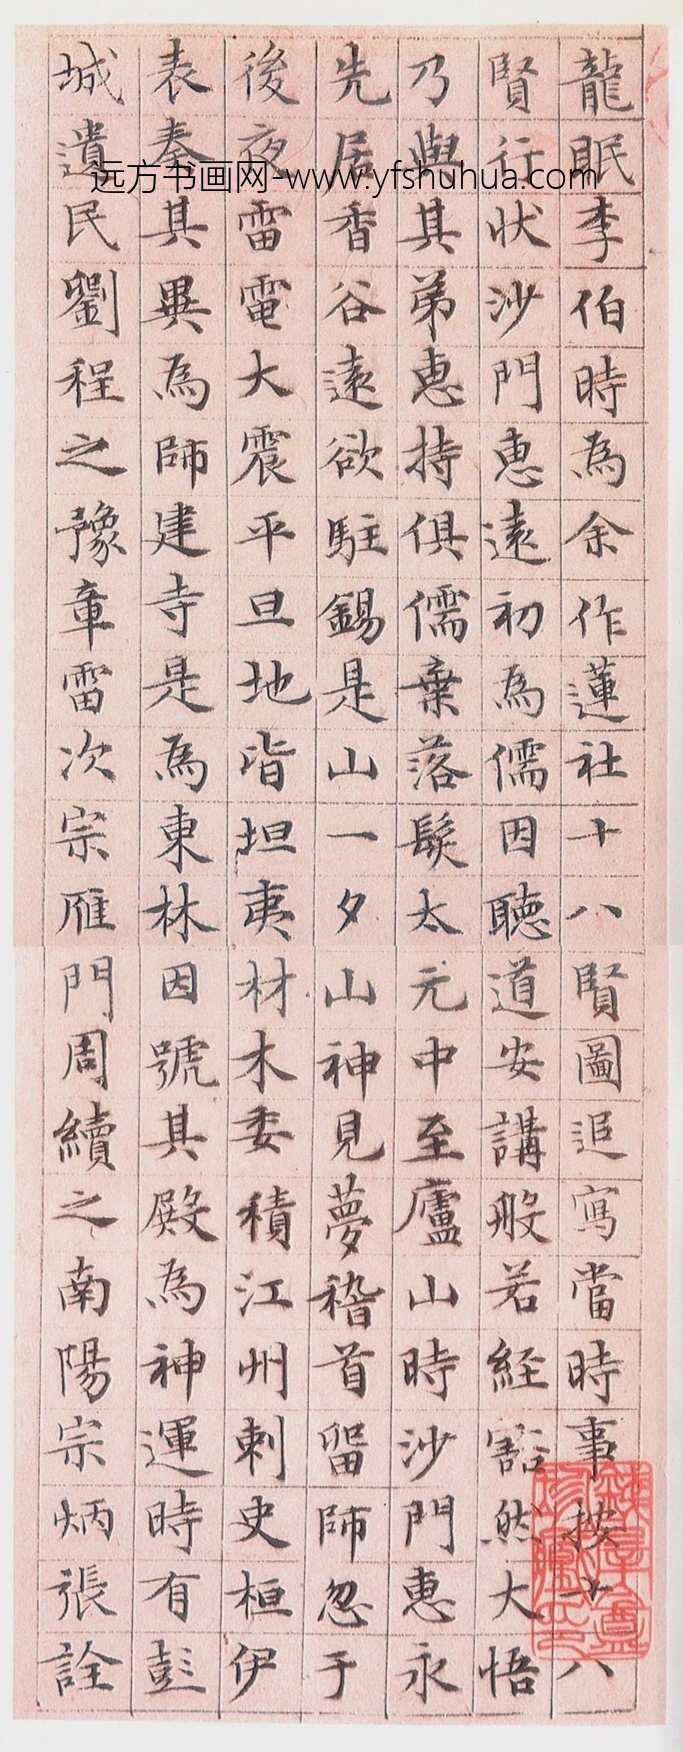 龍眠李伯時為余作蓮社十八賢圖追寫當時事按十八
賢行狀沙門惠遠初為儒因聽道安講般若經豁然大悟
乃與其弟惠持俱儒棄落髮太元中至廬山時沙門惠永
先居香谷遠欲駐錫是山一夕山神見夢稽首留師忽于
後夜雷電大震平旦地皆坦夷材木委積江州刺史桓伊
表奏其異為師建寺是為東林因號其殿為神運時有彭
城遺民劉程之豫章雷次宗雁門周續之南陽宗炳張詮
远方书画网-www.yfshuhua.com